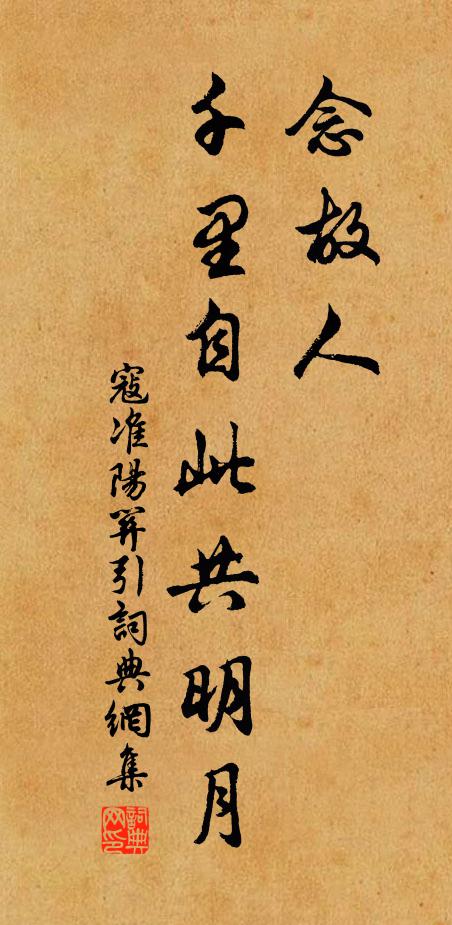 念故人
千里自此共明月
寇准陽関引詞典網集
詞典网印